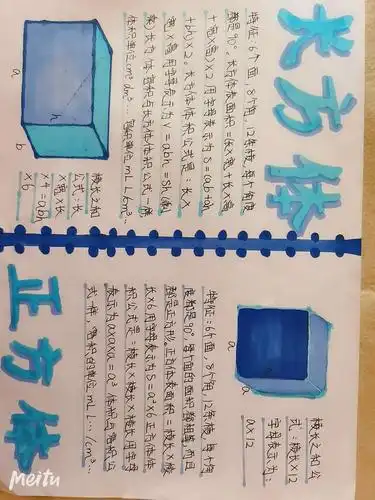 长方体
特征:6个面,8个角,12条棱,每个角度
都是90°。长方体表面积=(长×宽+长×高
+宽×高)×2 用字母表示为S=(ab+ah
+bh)×2。长方体体积公式是:长×
宽×高 用字母表示为V=abh=Sh(底)
长方体容积与长方体体积公式一样
体积单位cm³ dm³… 容积单位mL L/cm³…
a
h
b
棱长之和
公式:长
×宽×长
×4=abh
×6
正方体
特征:6个面,8个角,12条棱,每个角
度都是90°每个面的面积都相等而且
都是正方形。正方体表面积=棱长×棱
长×6 用字母表示为S=a²×6 正方体体
积公式是:棱长×棱长×棱长用字母
表示为a×a×a=a³ 体积与容积公
式一样 容积的单位mL L…/cm³…
a
a
a
棱长之和公
式:棱长×12
字母表示为:
a×12
Meitu